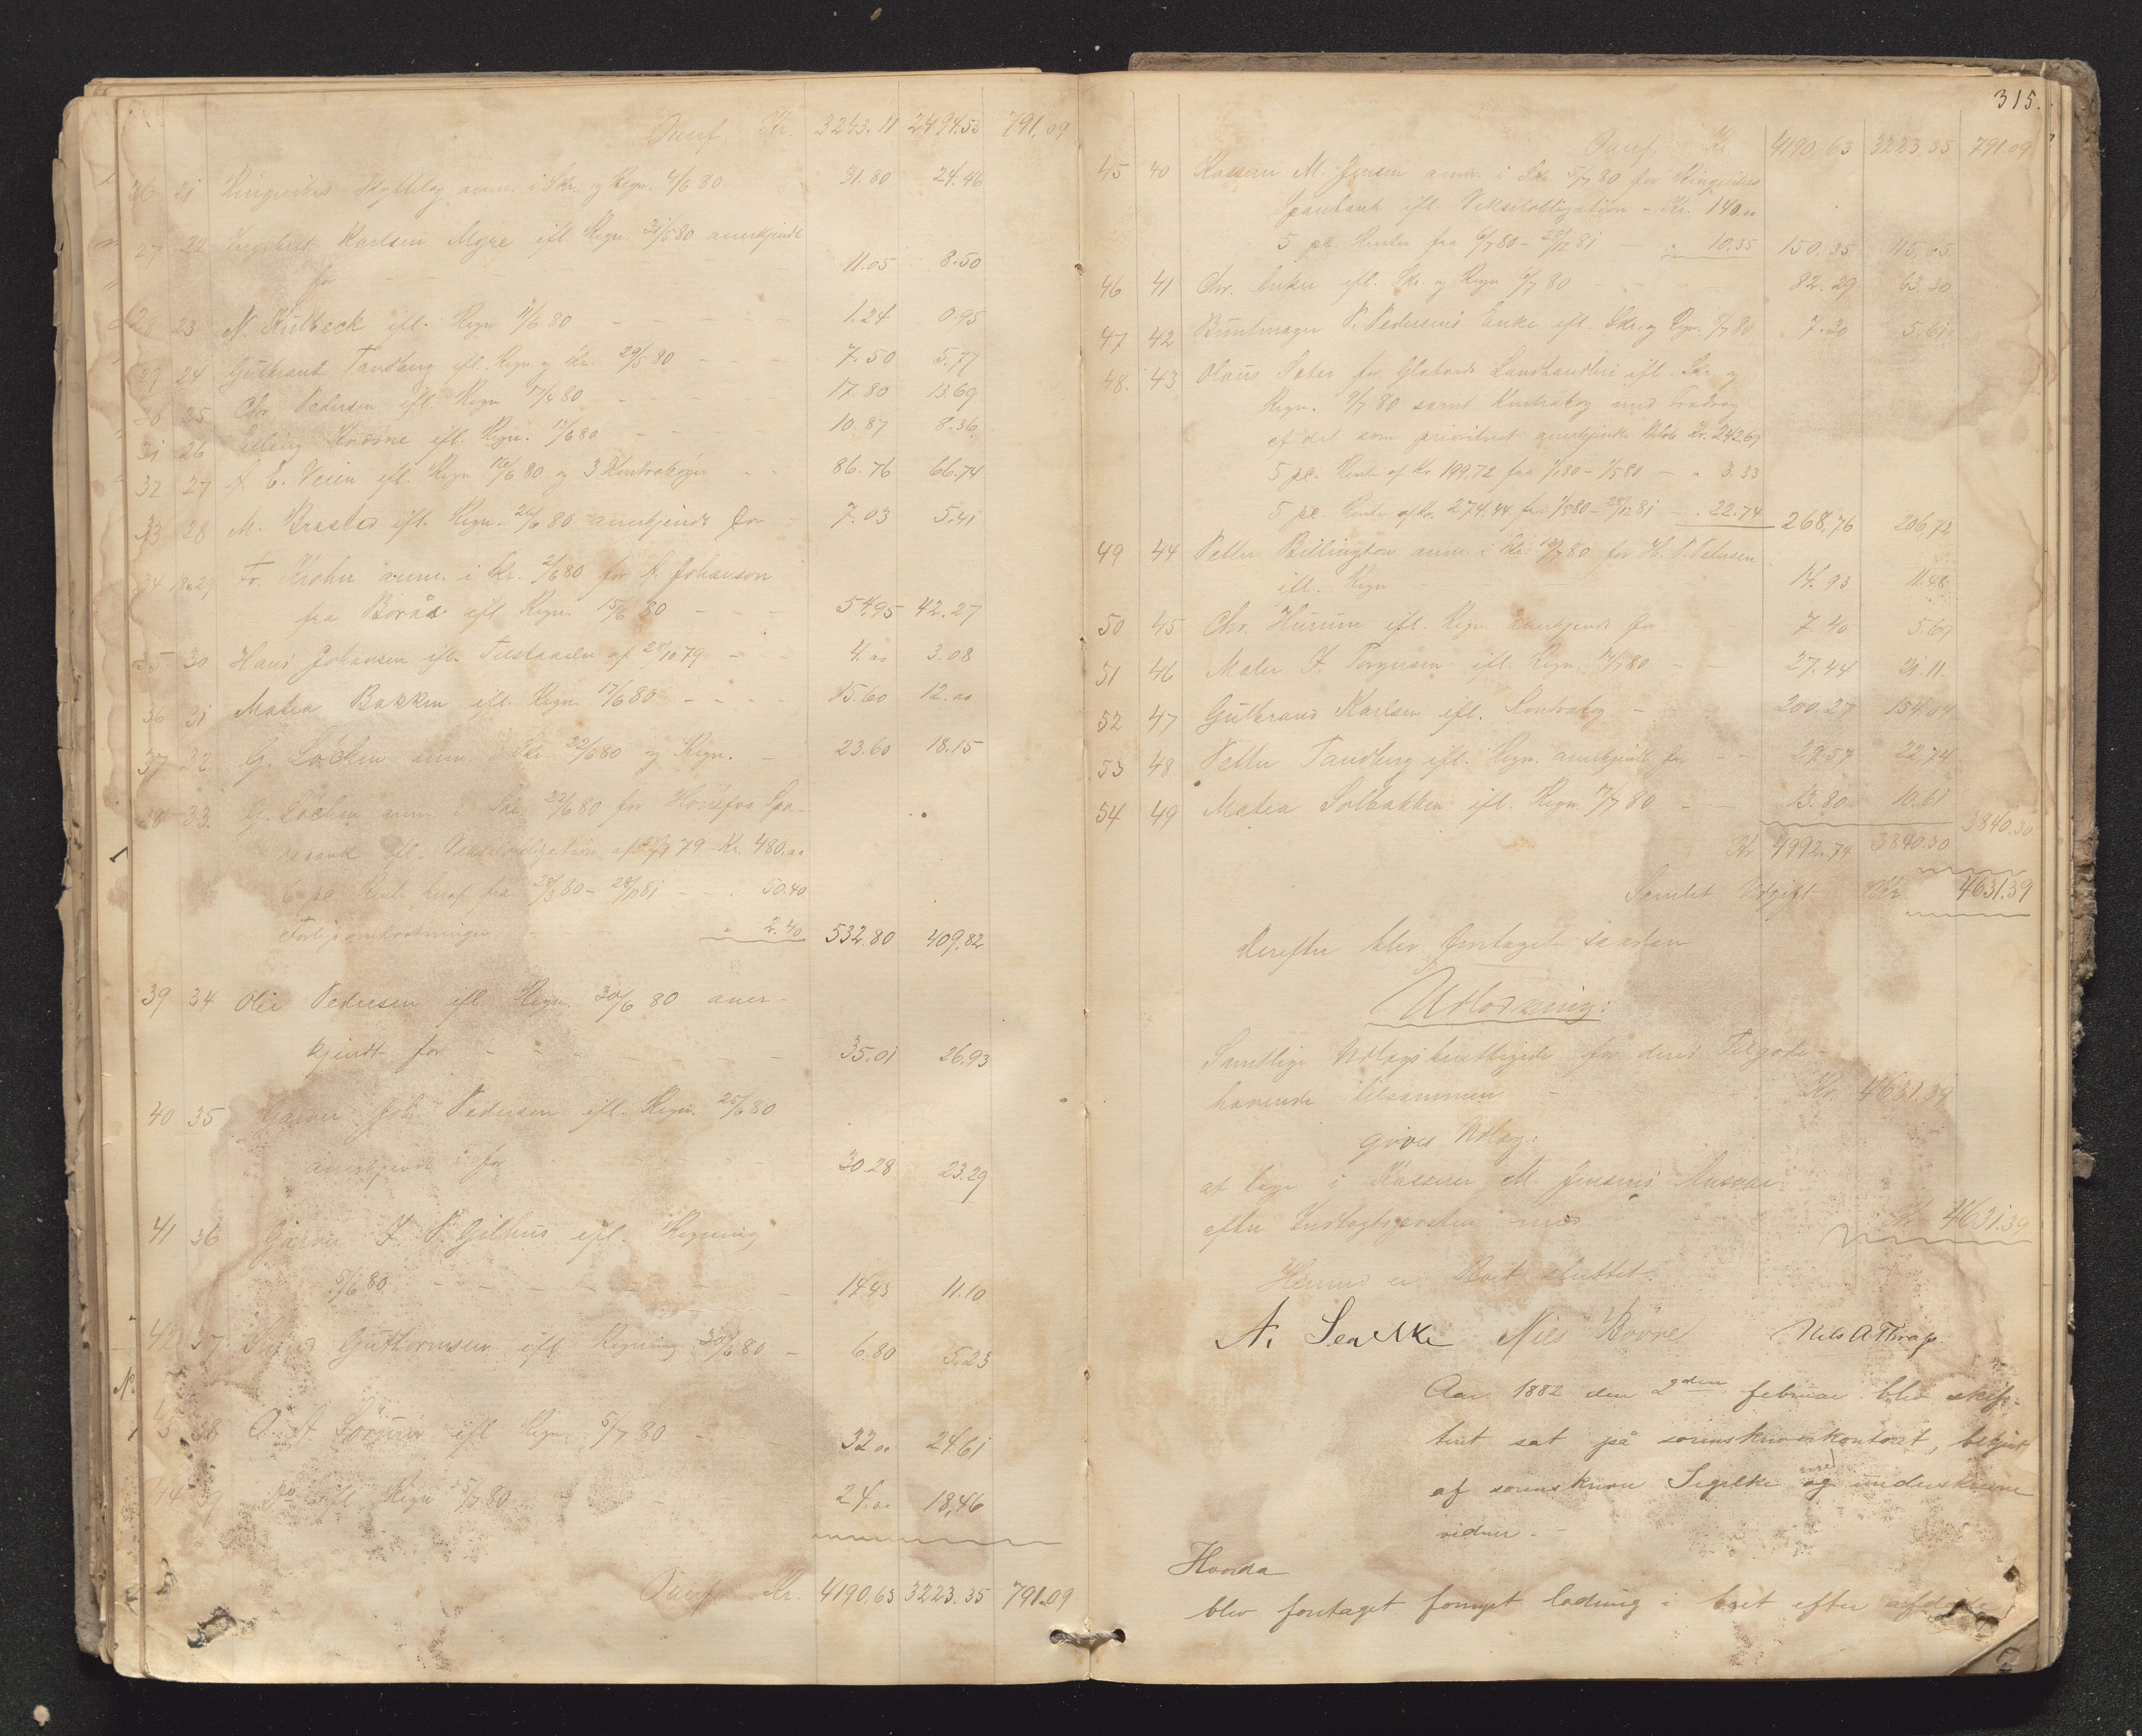 Transf. Kr. 3243.11 2494.53 791.09
26 21 Ringerikes Skyldelag anm. i Skr. og Regn. 4/6 80 31.80 24.46
27 22 Ingebret Karlsen Myre ifl. Regn. 31/5 80 anerkjendt
for 11.05 8.50
28 23 N. Kulbeck ifl. Regn 11/6 80 1.24 0.95
29 24 Gulbrand Tandberg ifl. Regn. og Skr. 29/5 80 7.50 5.77
30 25 Chr. Pedersen ifl. Regn 17/6 80 17.80 13.69
31 26 Elling ifl. Regn. 12/6 80 10.87 8.36
32 27 A. E. Veien ifl. Regn 16/6 80 og 3 Kontrabøger 86.76 66.74
33 28 M. Brastad ifl. Regn. 26/6 80 anerkjendt for 7.03 5.41
34 29 Fr. Krohn anm. i Skr. 2/6 80 for A. Johanson
fra Borås ifl. Regn. 15/6 80 54.95 42.27
35 30 Hans Johansen ifl. Tilstaaelse af 28/10 79 4.00 3.08
36 31 Matea Bakken ifl. Regn 17/6 80 15.60 12.00
37 32 G. Løchen anm. i Skr. 22/6 80 og Regn. 23.60 18.15
38 33. G. Løchen anm. i Skr. 22/6 80 for Hønefos Spa-
rebank ifl. Vekselobligation af 79 Kr. 480.00
6 pc. Rente heraf fra 28/3 80 - 28/12 81 50.40
Forligsomkostninger 2.40 532.80 409.82
39 34 Ole Pedersen ifl. Regn. 30/6 80 aner-
kjendt for 35.01 26.93
40 35 Garver Joh. Pedersen ifl. Regn. 25/6 80
anerkjendt for 30.28 23.29
41 36 Garver F. P. Gilhus ifl. Regning
5/6 80 14.43 11.10
42 37 Svend Guttormsen ifl. Regning 30/6 80 6.80 5.23
43 38 O. A. Sørum ifl Regn. 5/7 80 32.00 24.61
44 39 Do ifl Regn 5/7 80 24.00 18,46
Transf. Kr. 4190,63 3223.35 791.09
315.
Transf. Kr. 4190.63 3223.35 791.09
45 40 Kasserer M. Jensen anm. i Skr 5/7 80 for Ringerikes
Sparebank ifl. Vekselobligation - Kr. 140.00
5 pc. Renter fra 6/7 80 - 28/12 81 10.35 150,35 115.65
46 41 Chr. Anker ifl. Skr. og Regn 6/7 80 82.29 63.30
47 42 Buntmager P. Pedersens Enke ifl. Skr. og Regn. 8/7 80 7.30 5.61
48. 43 Olaus Sæter for Glatveds Landhandleri ifl. Skr. og
Regn. 9/7 80 samt Kontrabog med Fradrag
af det som prioriteret anerkjendte Beløb Kr. 242.69
5 pc. Rente af Kr. 199.72 fra 1/1 80 - 1/5 80 3.33
5 pc. Rente af Kr. 274.44 fra 1/5 80 - 28/12 81 22.74 268,76 206,72
49 44 Petter Billington anm. i Skr. 10/7 80 for H. P. Petersen
ifl. Regn 14.93 11.48
50 45 Chr. Hurum ifl. Regn anerkjendt for 7.40 5.69
51 46 Maler F. Torgersen ifl. Regn. 14/7 80 27.44 21.11.
52 47 Gulbrand Karlsen ifl. Kontrabog 200.27 154.04
53 48 Petter Tandberg ifl. Regn. anerkjendt for 29.57 22.74
54 49 Matea Solbakken ifl. Regn. 17/7 80 13.80 10.61
Kr. 4992.74 3840.30 3840.30
Samlet Udgift Kr. 4631.39
Derefter blev foretaget saadan
Udlodning:
Samtlige Udlagsberettigede for deres Tilgode-
havende tilsammen Kr. 4631.39
gives Udlag:
at tage i Kasserer M. Jensens Ansvar
efter Indtægtsposten med Kr. 4631.39
Hermed er Boet sluttet.
A. Seelke Niels Bovre Nils A Thrap
Aar 1882 den 2den februar blev skif-
teret sat på sorenskriverkontoret, betjent
af sorenskriver Segelke med og underskrevne
vidner.
Hvorda
blev foretaget fornyet lodning i boet efter afdøde